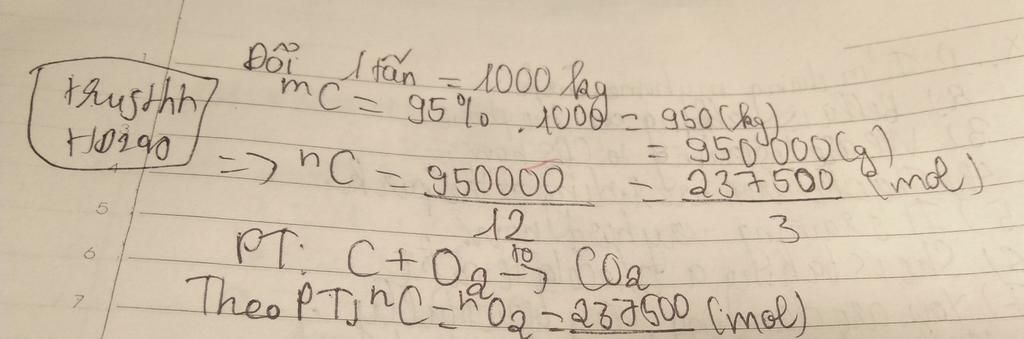 Đổi 1 tấn = 1000 kg
mC = 95% . 1000 = 950 (kg)
= 950 000 (g)
=> nC = 950000/12 = 237500/3 (mol)
PT: C + O2 -to-> CO2
Theo PT, nC = nO2 = 237500 (mol)
5
6
7